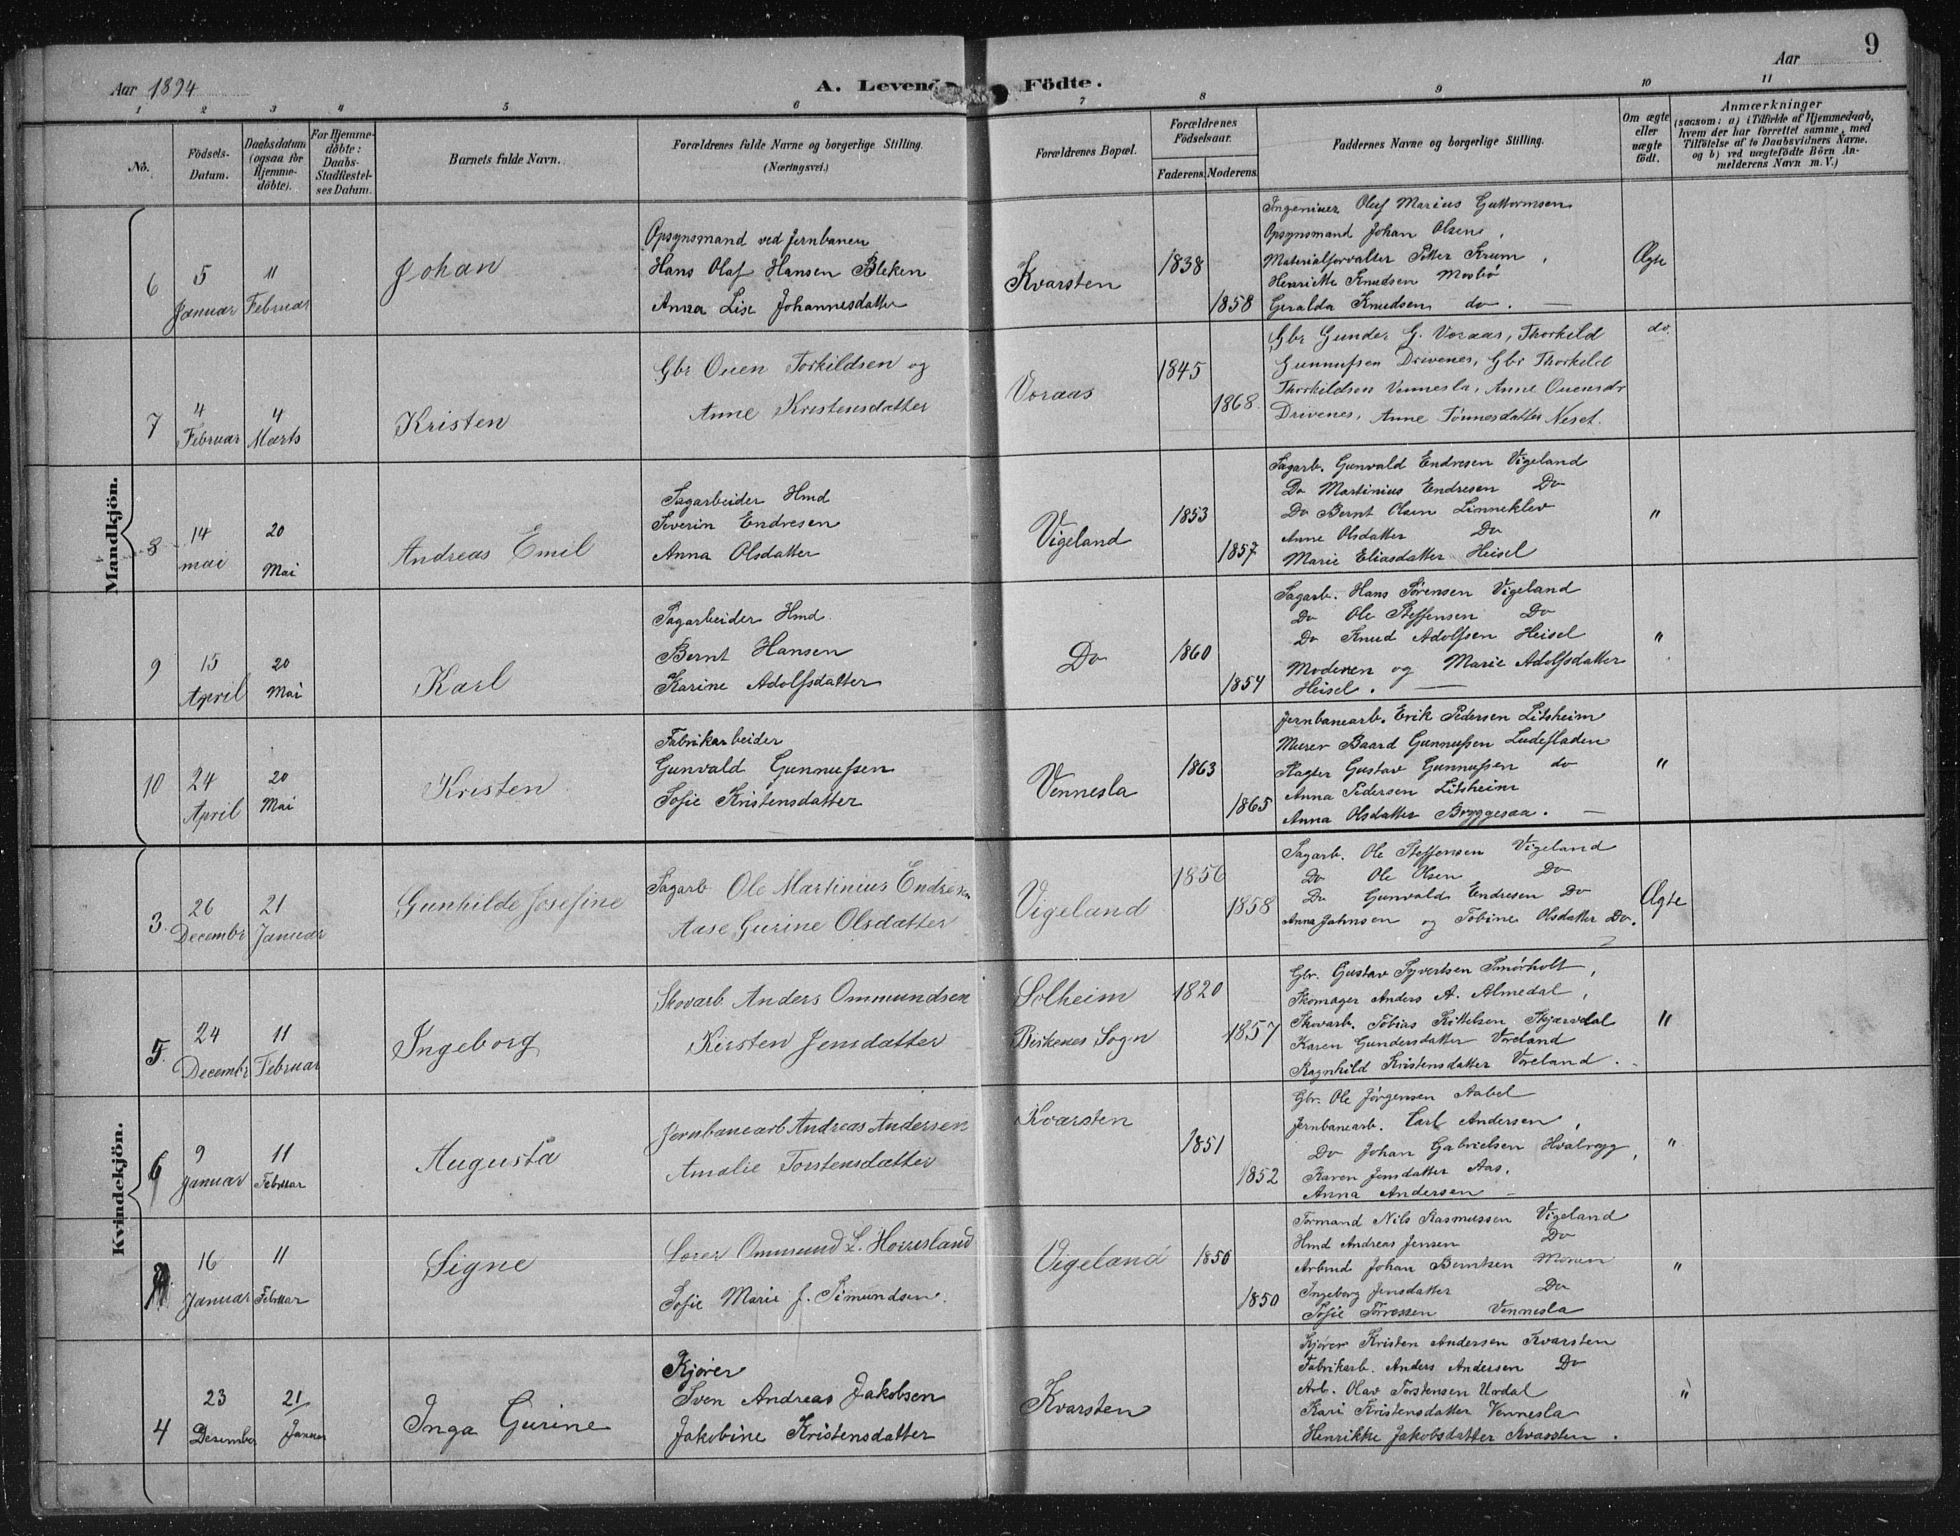 9
Aar 1894
A. Levende Födte.
Aar
1 2 3 4 5 6 7 8 9 10 11
No.
Födsels-Datum.
Daabsdatum (ogsaa for Hjemmedöbte).
For Hjemmedöbte: Daabs-Stadfæstelses Datum.
Barnets fulde Navn.
Forældrenes fulde Navne og borgerlige Stilling. (Næringsvei.)
Forældrenes Bopæl.
Forældrenes Födselsaar.
Faderens. Moderens.
Faddernes Navne og borgerlige Stilling.
Om ægte eller uægte födt.
Anmærkninger
(saasom: a) i Tilfælde af Hjemmedaab, hvem der har forrettet samme, med Tilföielse af to Daabsvidners Navne. og b) ved uægtefödte Börn Anmelderens Navn m. V.)
Mandkjön.
6
5 Januar
11 Februar
Johan
Opsynsmand ved Jernbanen
Hans Olaf Hansen Bleken
Anna Lise Johannesdatter
Kvarsten
1838
1858
Ingeniuer Oluf Marius Guttormsen
Opsynsmand Johan Olsen,
Materialforvalter Petter Krum,
Henriette Knudsen Mosbö
Geralda Knudsen do. —
Ægte
7
4 Februar
4 Marts
Kristen
Gbr Ouen Torkildsen og
Anne Kristensdatter
Voraas
1845
1868
Gbr Gunder G. Voraas, Thorkild
Gunnufsen Drivenes, Gbr Thorkild
Thorkildson Vennesla, Anne Ouensdr
Drivenes, Anne Tönnesdatter Neset.
do.
8
14 mai
20 Mai
Andreas Emil
Sagarbeider Hmd
Severin Endresen
Anna Olsdatter
Vigeland
1853
1857
Sagarb. Gunvald Endresen Vigeland
Do Martinius Endresen Do
Do Bernt Olsen Linneklev
Anne Olsdatter Do
Marie Eliasdatter Heisel
"
9
15 April
20 Mai
Karl
Sagarbeider Hmd
Bernt Hansen
Karine Adolfsdatter
Do
1860
1854
Sagarb. Hans Sørensen Vigeland
Do Ole Steffensen Do
Do Knud Adolfsen Heisel
Moderen og Marie Adolfsdatter
Heisel. —
"
10
24 April
20 Mai
Kristen
Fabrikarbeider
Gunvald Gunnufsen
Sofie Kristensdatter
Vennesla
1863
1865
Jernbanearb. Erik Pedersen Litsheim
Murer Baard Gunnufsen Ludefladen
Slagter Gustav Gunnufsen do
Anna Pedersen Litsheim
Anna Olsdatter Bryggesaa. —
"
Kvindekjön.
3.
26 Decembr
21 Januar
Gunhilde Josefine
Sagarb Ole Martinius Endresen
Aase Gurine Olsdatter
Vigeland
1856
1858
Sagarb. Ole Steffensen Vigeland
Do Ole Olsen Do
Do Gunvald Endresen Do
Anna Jahnsen og Tobine Olsdatter Do.
Ægte
5.
24 Decembr
11 Februar
Ingeborg
Skovarb Anders Ommundsen
Kirsten Jensdatter
Solheim
Birkenes Sogn
1820
1857
Gbr. Gustav Syvertsen Smørholt,
Skomager Anders A. Almedal,
Skovarb. Tobias Kittelsen Skjærdal
Karen Gundersdatter Voreland
Ragnhild Kristensdatter Voreland.
"
6
9 Januar
11 Februar
Augusta
Jernbanearb Andreas Andersen
Amalie Torstensdatter
Kvarsten
1851
1852
Gbr. Ole Jörgensen Aabel
Jernbanearb. Carl Andersen,
Do Johan Gabrielsen Hvalrygg,
Karen Jensdatter Aas,
Anna Andersen —
"
16 Januar
11 Februar
Signe
Ommund L.
Sofie Marie J. Simundsen.
Vigeland
1850
1850
Formand Nils Rasmussen Vigeland
Hmd Andreas Jensen Do
Arbmd Johan Berntsen Moren
Ingeborg Jensdatter Do
Sofie Torressen Vennesla
"
4
23 Desember
21 Januar
Inga Gurine
Kjörer
Sven Andreas Jakobsen
Jakobine Kristensdatter
Kvarsten
Kjörer Kristen Andersen Kvarsten
Fabrikarb. Anders Andersen Do
Arb. Olav Torstensen Urdal
Kari Kristensdatter Vennesla
Henrikke Jakobsdatter Kvarsten.
"